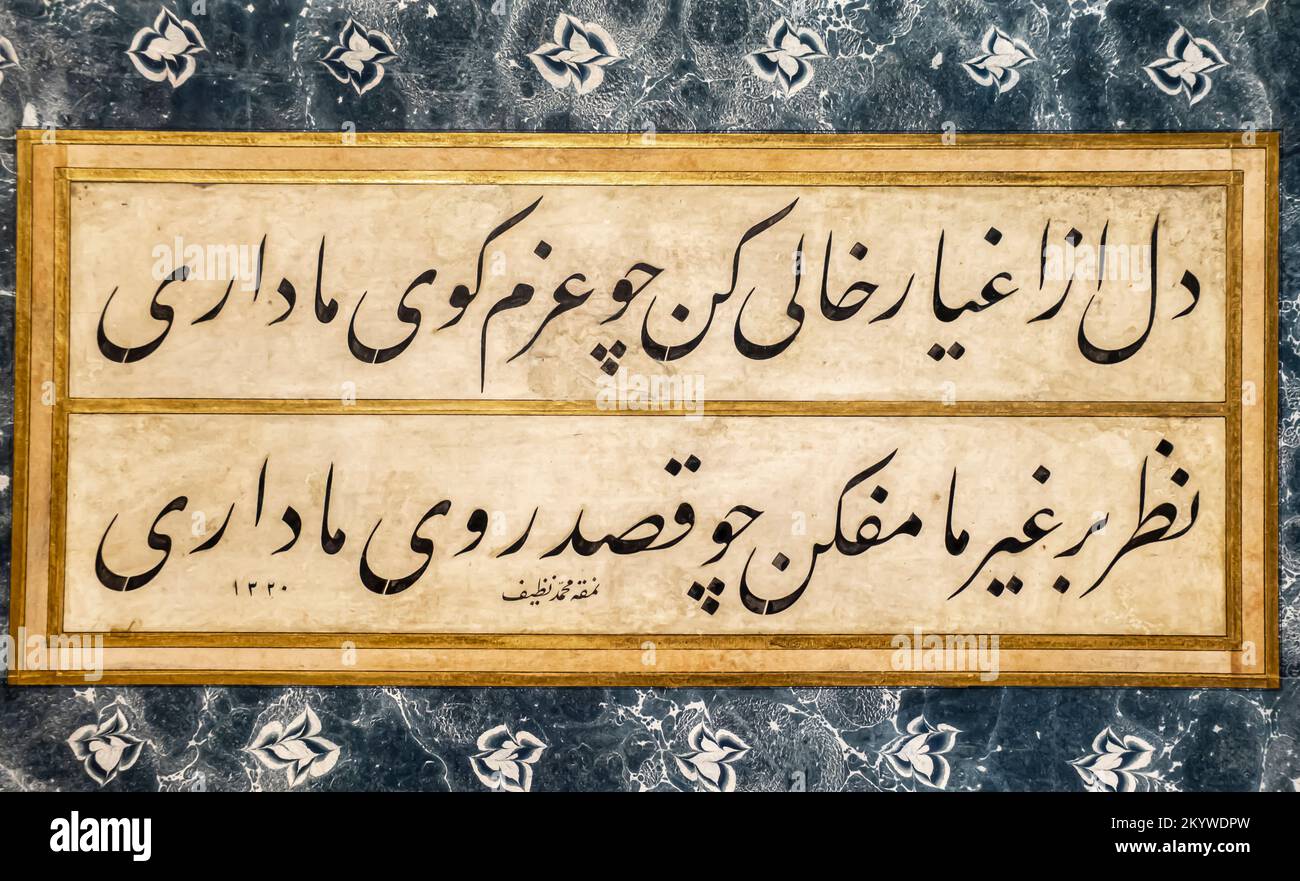 دل از اغیار خالی کن چو عزم کوی ما داری
نظر بر غیر ما مفکن چو قصد روی ما داری
نمقه محمد نظيف
١٣٢٠
alamy
alamy
Image ID: 2KYWDPW
www.alamy.com